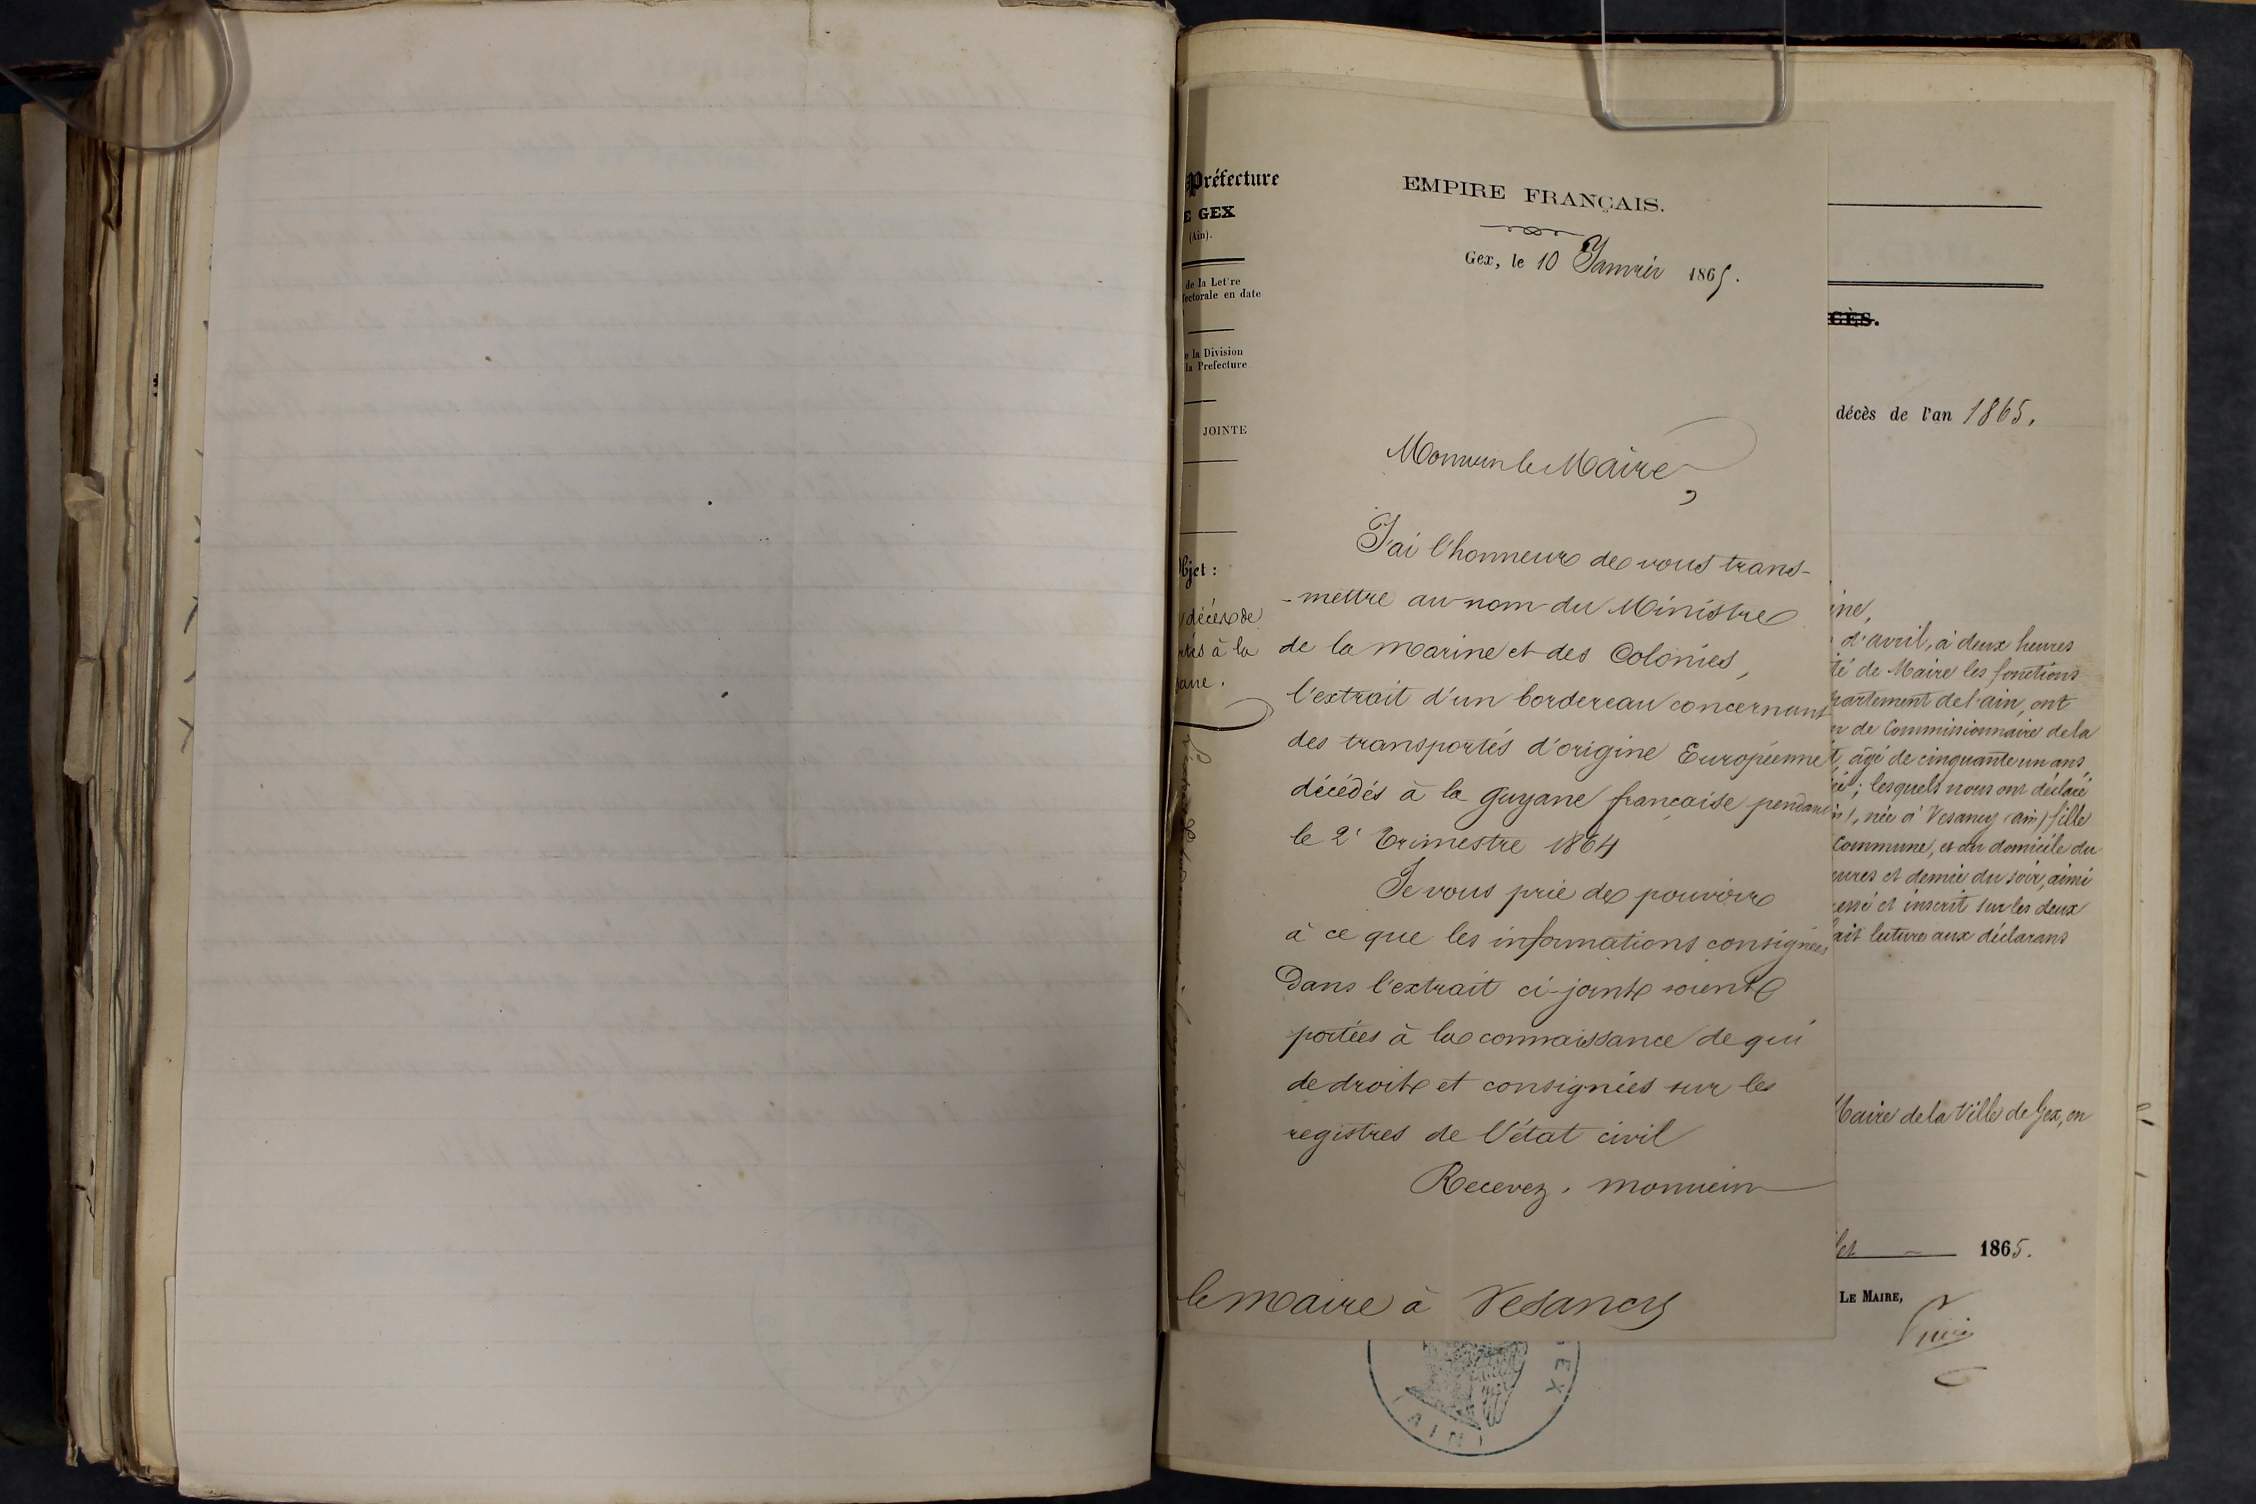 Préfecture
E GEX
(Ain).
de la Let're
fectorale en date
e la Division
la Prefecture
JOINTE
Objet :
décès de
rtés à la
ane.
EMPIRE FRANÇAIS.
Gex, le 10 Janvier 1865.
Monsieur le Maire,
J'ai l'honneur de vous trans-
-mettre au nom du Ministre
de la marine et des Colonies,
l'extrait d'un bordereau concernant
des transportés d'origine Européenne
décédés à la Guyane française pendant
le 2e Trimestre 1864
Je vous prie de pouvoir
à ce que les informations consignées
Dans l'extrait ci-joint soient
portées à la connaissance de qui
de droit et consignées sur les
registres de l'état civil
Recevez, monsieur
le maire à Vesancy
CÈS.
décès de l'an 1865.
ine,
d'avril, à deux heures
té de Maire les fonctions
partement de l'ain, ont
de Commissionnaire de la
âgé de cinquante un ans
lesquels nous ont déclaré
née à Vesancy (ain) fille
Commune, et du domicile du
eures et demie du soir, ainsi
essé et inscrit sur les deux
ait lecture aux déclarans
Maire de la Ville de Gex, en
let 1865.
LE MAIRE,
EX
(AIN)